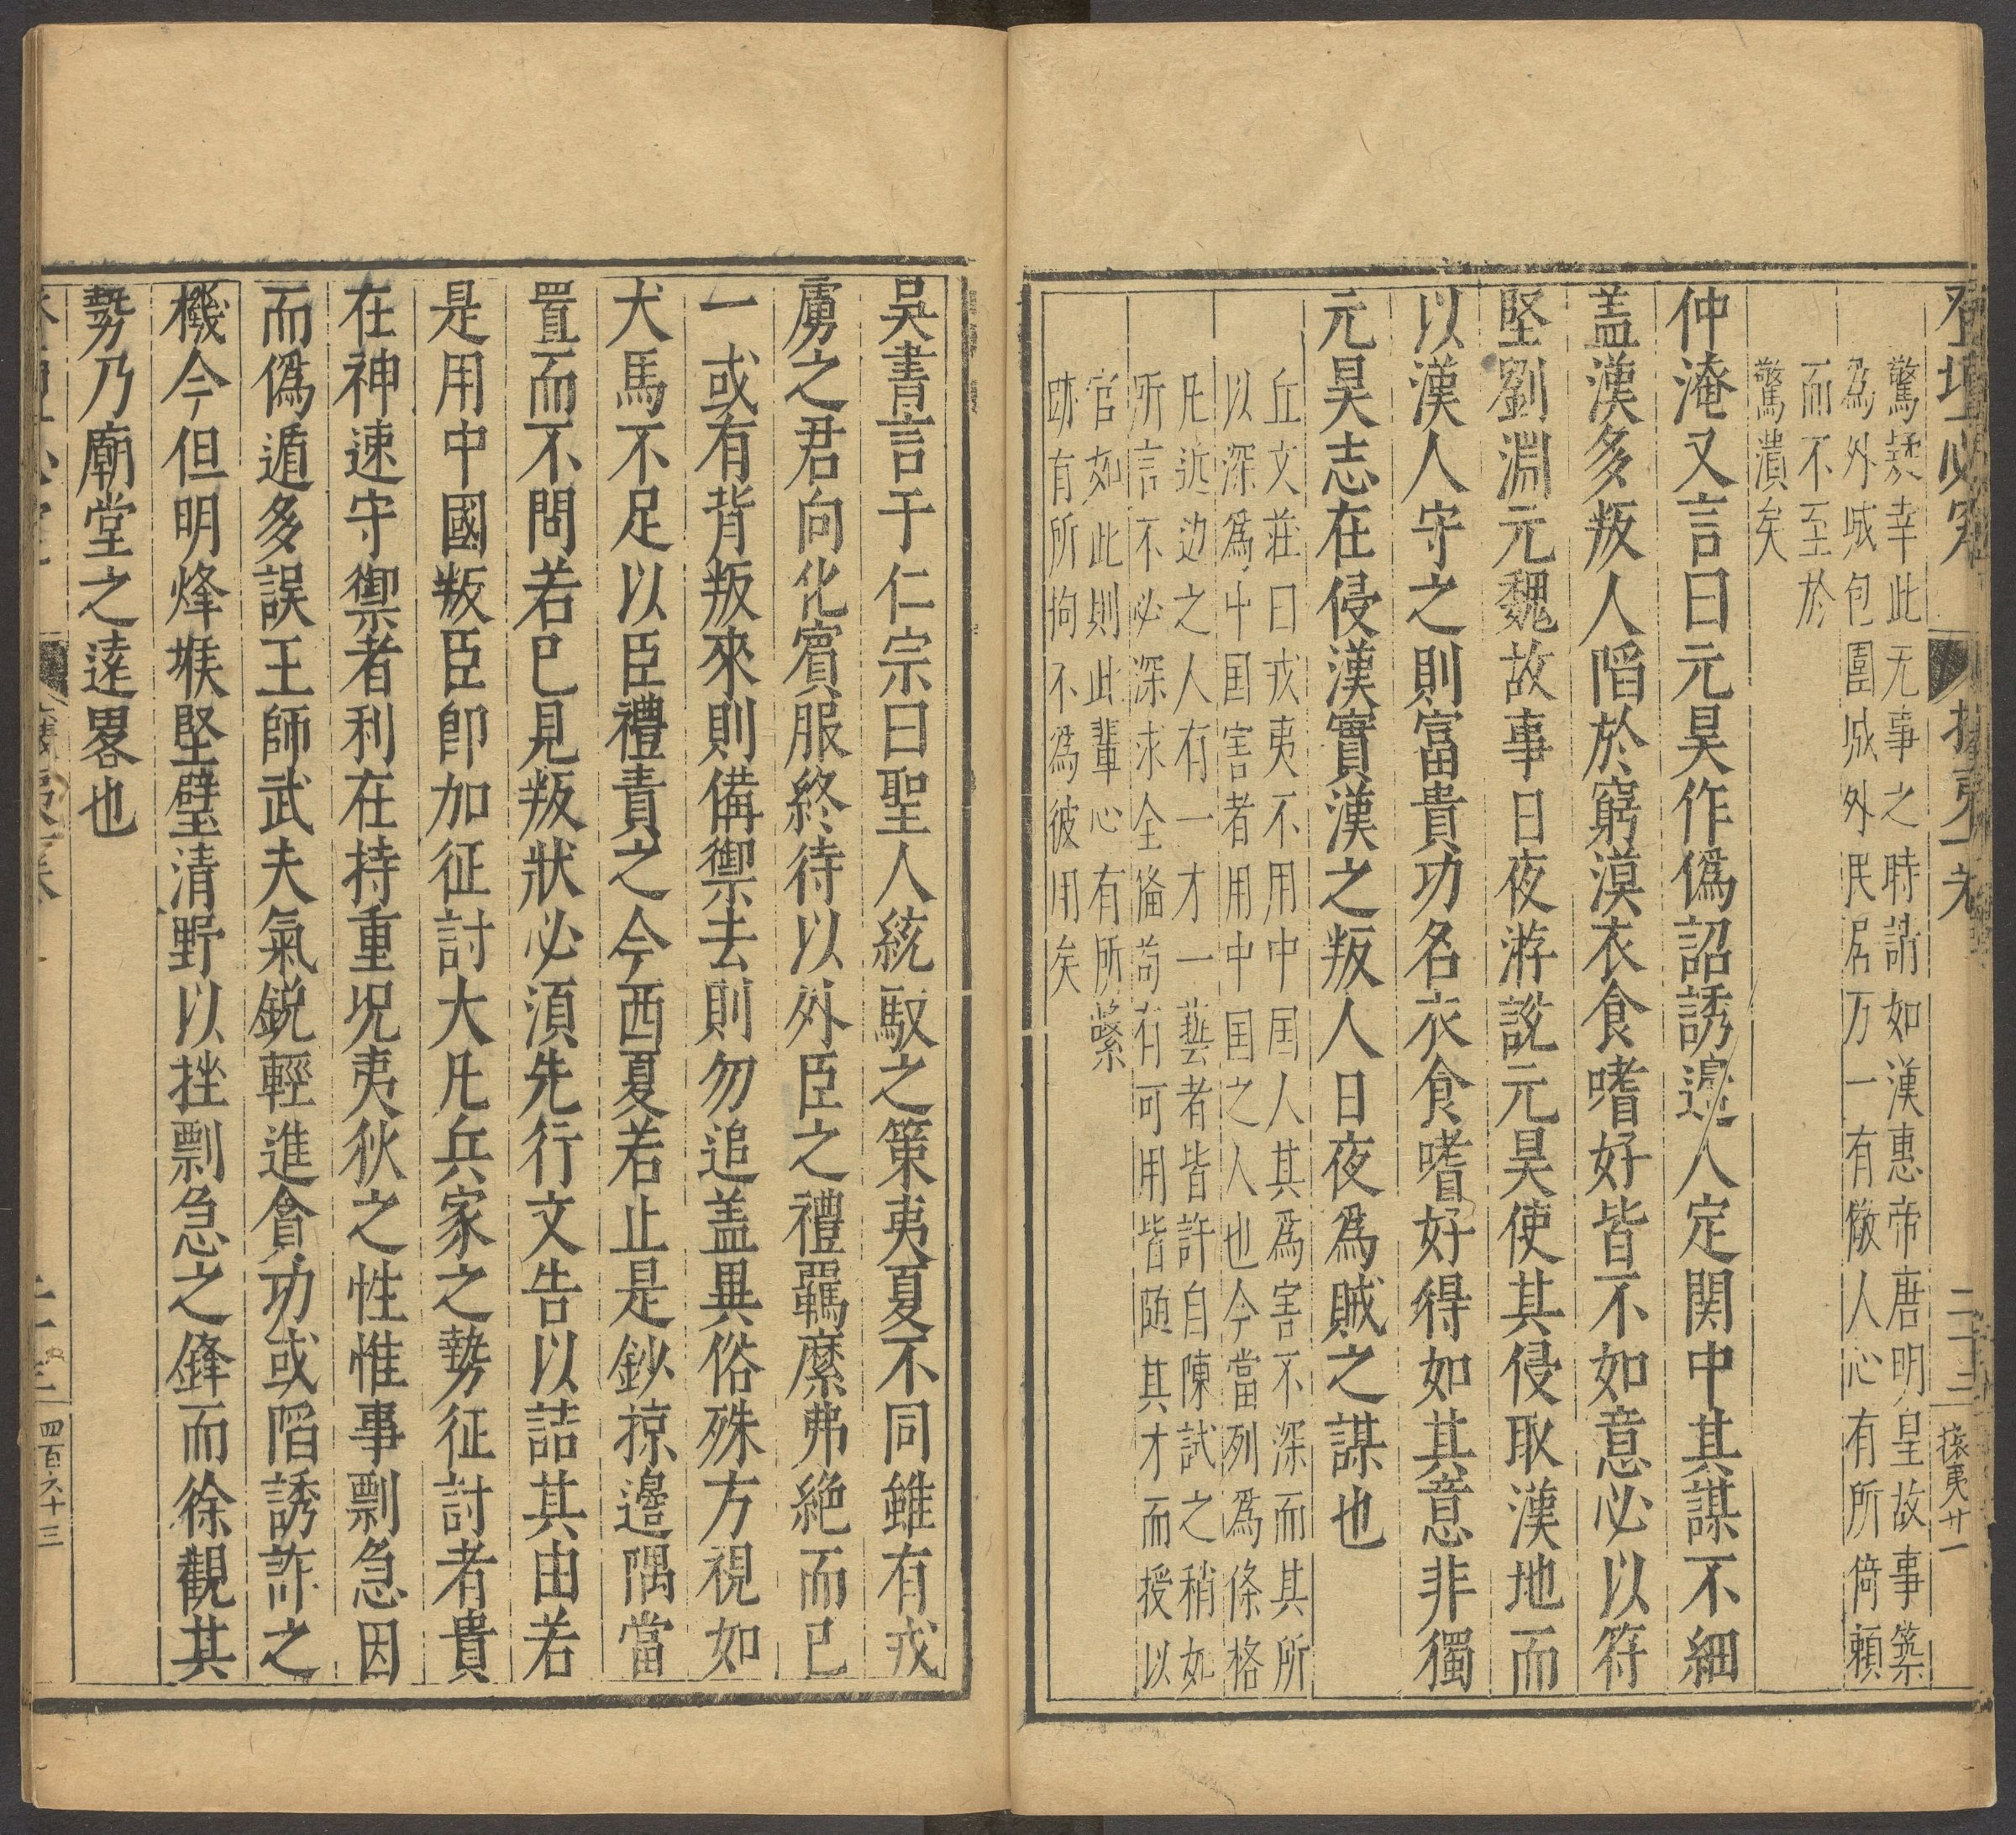 登壇必究
二十三
四夷廿一
驚疑幸此无事之時請如漢惠帝唐明皇故事築
爲外城包圍城外民居万一有儆人心有所倚頼
而不至於
驚潰矣
仲淹又言曰元昊作僞詔誘邉人定関中其謀不細
盖漢多叛人陷於窮漠衣食嗜好皆不如意必以符
堅劉淵元魏故事日夜游說元昊使其侵取漢地而
以漢人守之則富貴功名衣食嗜好得如其意非獨
元昊志在侵漢實漢之叛人日夜爲賊之謀也
丘文莊曰戎夷不用中囯人其爲害不深而其所
以深爲中囯害者用中囯之人也今當列爲條格
凡近边之人有一才一藝者皆許自陳試之稍如
所言不必深求全俻苟有可用皆随其才而授以
官如此則此輩心有所縈
跡有所拘不爲彼用矣
吳書言于仁宗曰聖人統馭之策夷夏不同雖有戎
虜之君向化賓服終待以外臣之禮羈縻弗絶而已
一或有背叛來則備禦去則勿追盖異俗殊方視如
犬馬不足以臣禮責之今西夏若止是鈔掠邉隅當
置而不問若已見叛狀必須先行文告以詰其由若
是用中國叛臣卽加征討大凡兵家之勢征討者貴
在神速守禦者利在持重况夷狄之性惟事剽急因
而僞遁多誤王師武夫氣銳輕進貪功或陷誘詐之
機今但明烽堠堅壁清野以挫剽急之鋒而徐觀其
勢乃廟堂之遠畧也
四百六十三